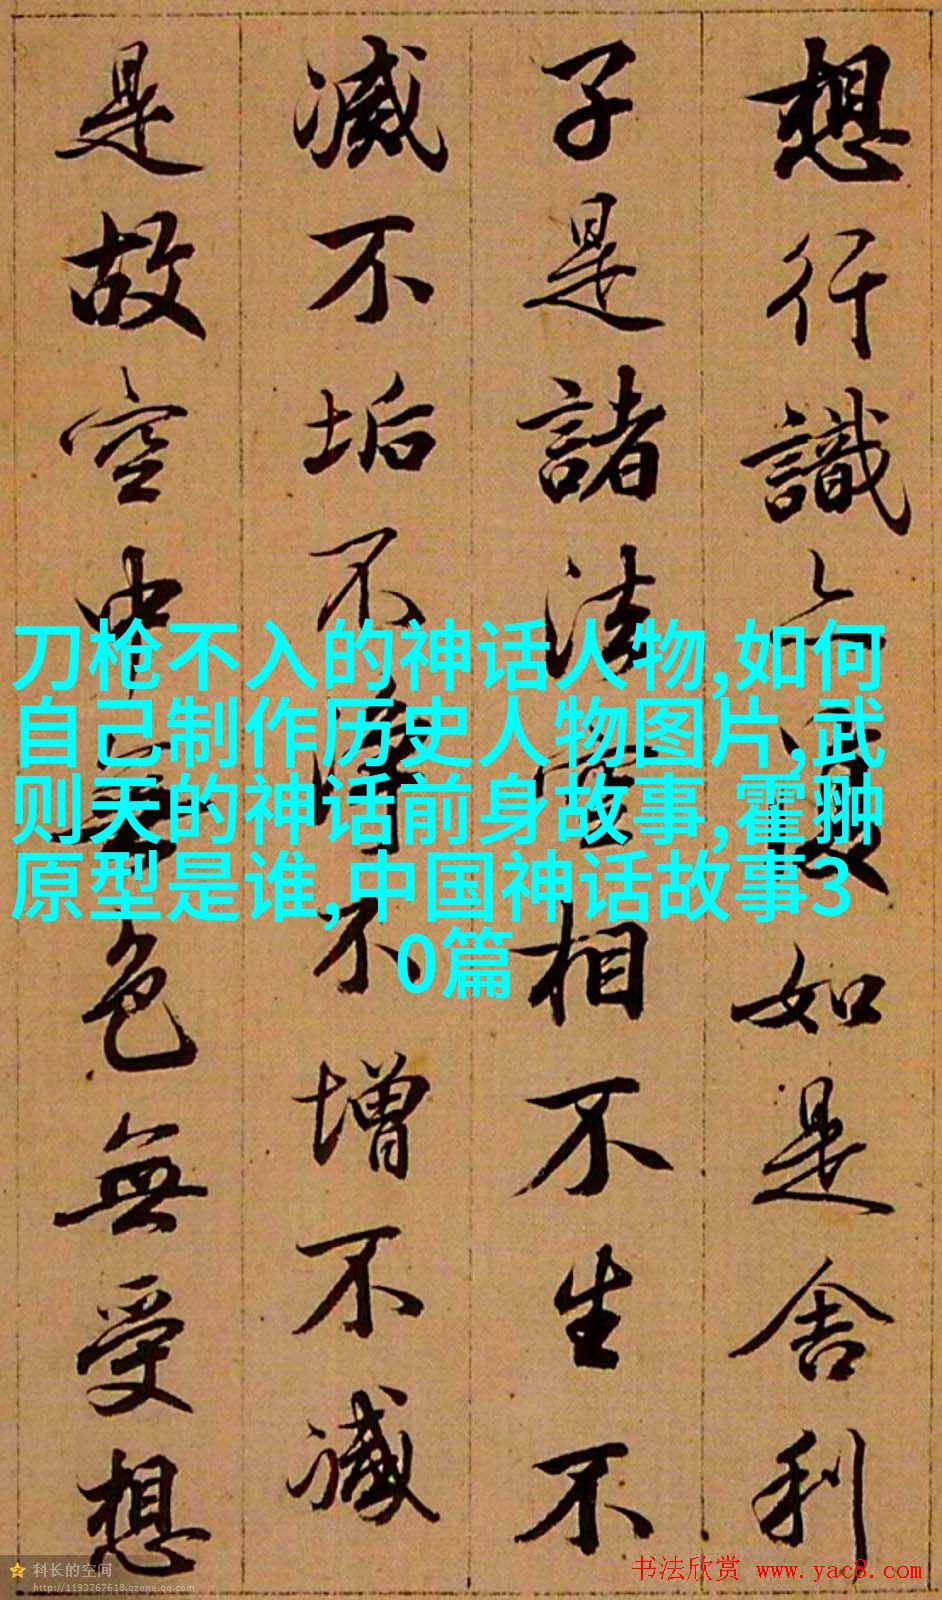 想行識亦復如是舍利
子是諸法空相不生不
滅不垢不淨不增不減
是故空中無色無受想
刀枪不入的神话人物,如何
自己制作历史人物图片,武
则天的神话前身故事,霍翀
原型是谁,中国神话故事3
0篇
科长的空间
http://1193767618.qzone.qq.com
书法欣赏 www.yac8.com